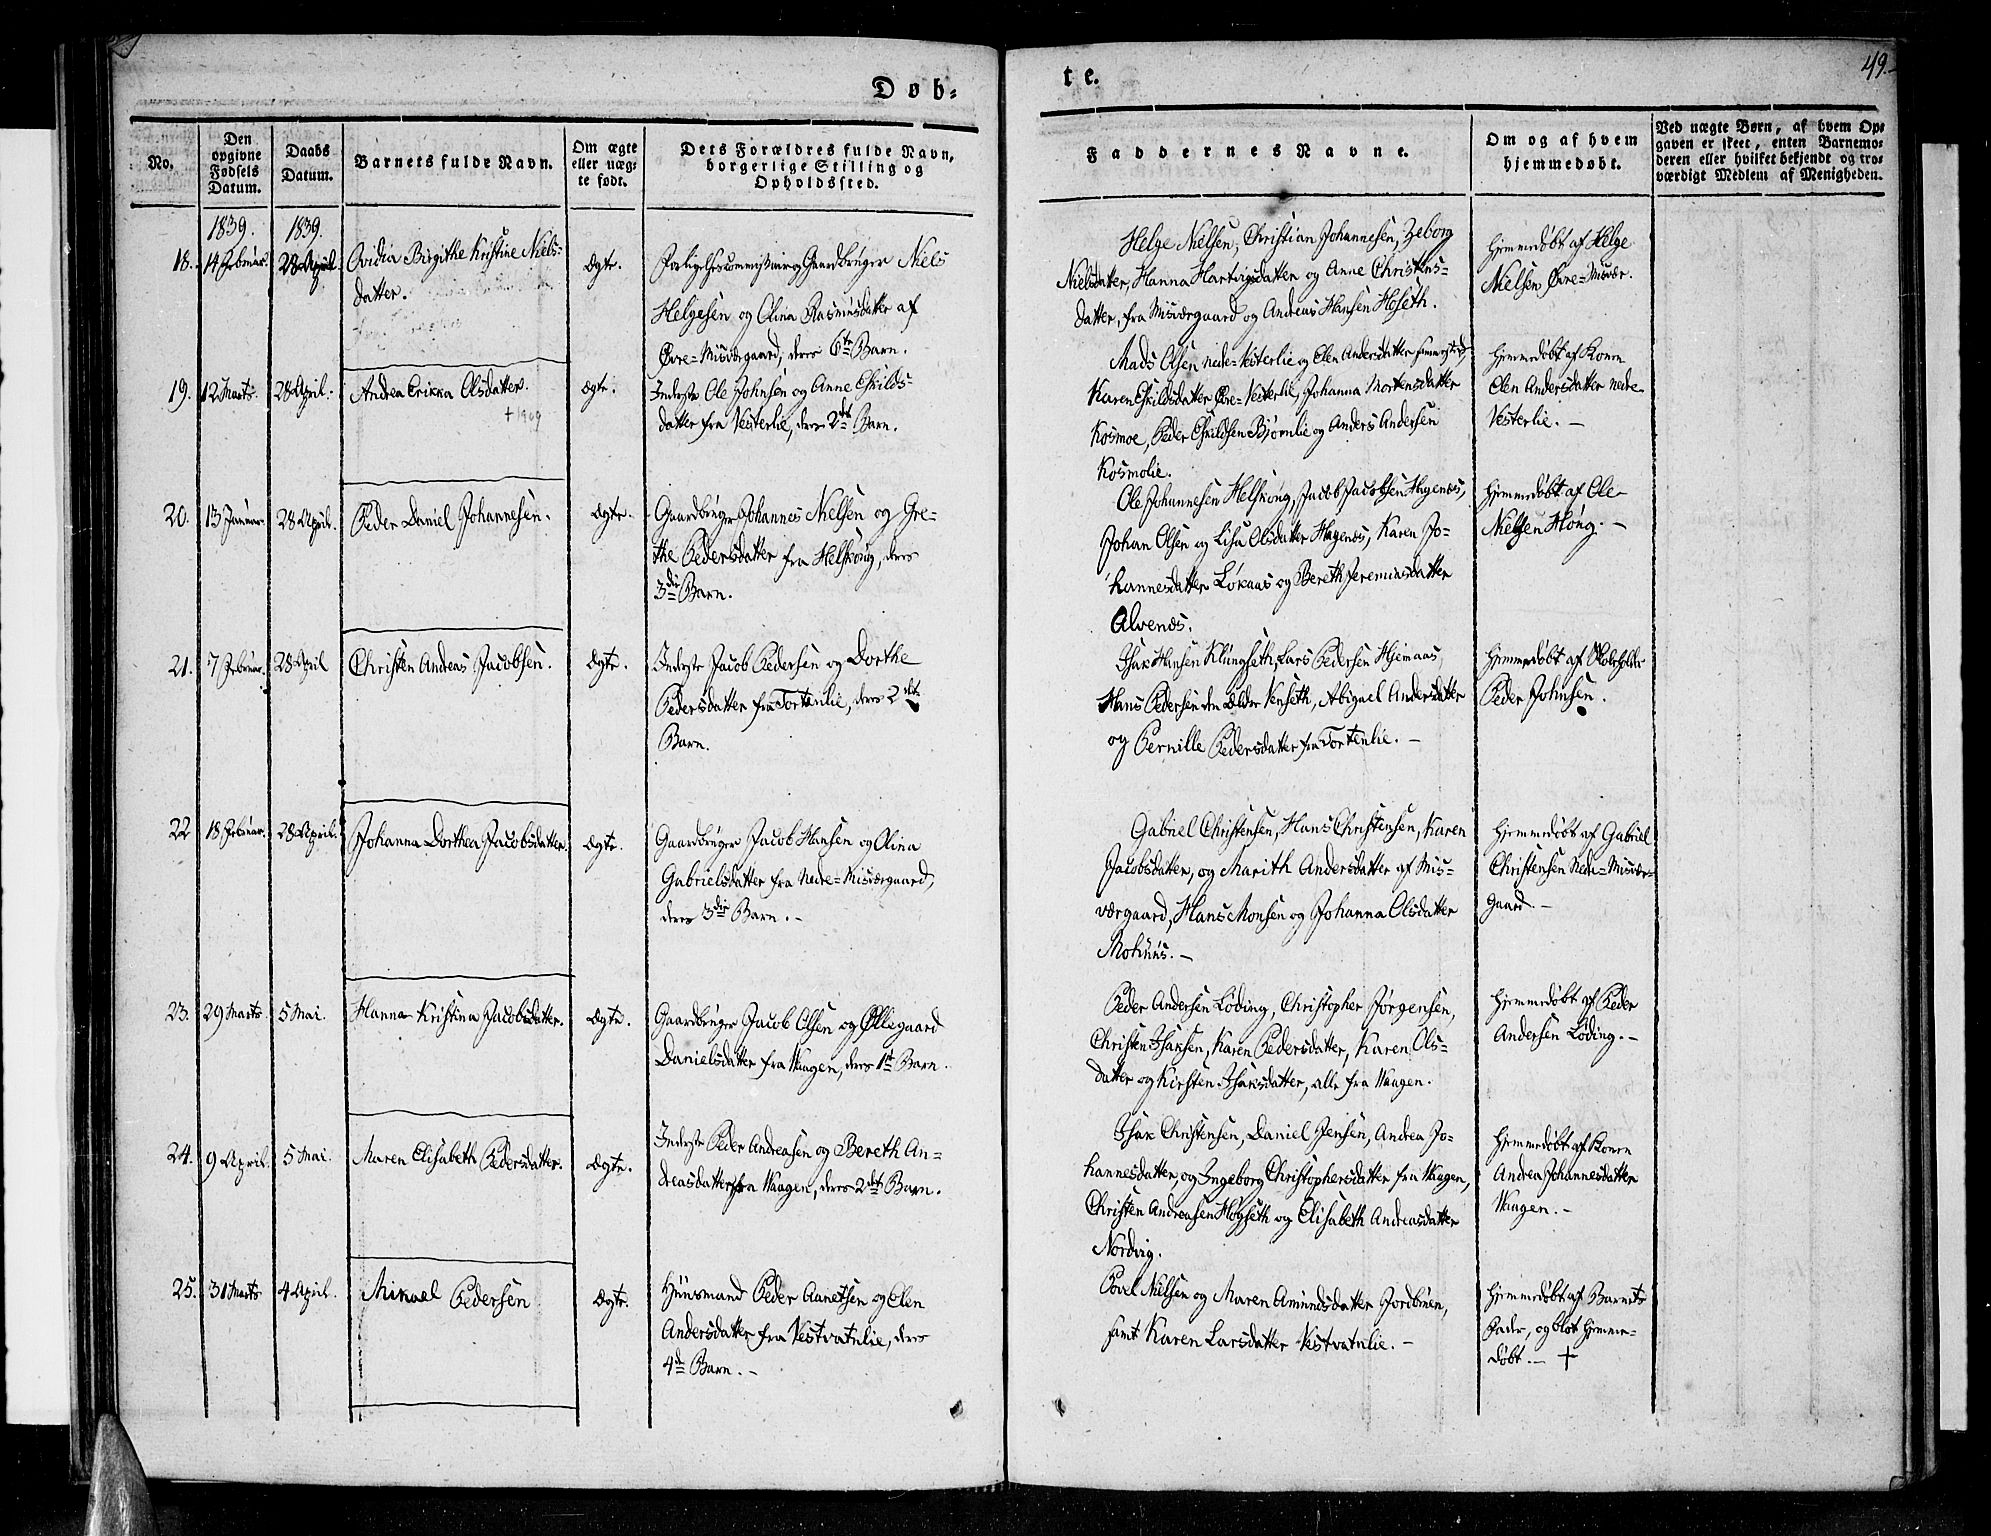 Døb-
te.
49.
No.
Den
opgivne
Fødsels
Datum.
Daabs
Datum.
Barnets fulde Navn.
Om ægte
eller uæg-
te født.
Dets Forældres fulde Navn,
borgerlige Stilling og
Opholdssted.
Faddernes Navne.
Om og af hvem
hjemmedøbt.
Ved uægte Børn, af hvem Op-
gaven er skeet, enten Barnemo-
deren eller hvilket bekjendt og tro-
værdigt Medlem af Menigheden.
1839.
1839.
18.
14 Februar.
28 April
Ovidia Birgithe Kristine Niels-
datter.
Ægte.
Forligelsescommissair og Gaardbruger Niels
Helgesen og Olina Rasmusdatter af
Øvre-Misværgaard, deres 6te Barn.
Helge Nielsen, Christian Johannesen, Zeborg
Nielsdatter, Hanna Hartvigsdatter og Anne Christens-
datter, fra Misværgaard og Andreas Hansen Hoseth.
Hjemmedøbt af Helge
Nielsen Øvre-Misvær.
19.
12 Marts.
28 April.
Andrea Erikka Olsdatter.
+ 1909
Ægte.
Inderste Ole Johnsen og Anne Eskilds-
datter fra Vesterlie, deres 2det Barn.
Mads Olsen nede-Vesterlie og Elen Andersdatter sammested,
Karen Eskildsdatter Øvre-Vesterlie, Johanna Mortensdatter
Kosmoe, Peder Eskildsen Bjørnlie og Anders Andersen
Kosmolie.
Hjemmedøbt af Konen
Elen Andersdatter nede-
Vesterlie. —
20.
13 Januar.
28 April.
Peder Daniel Johannesen.
Ægte.
Gaardbruger Johannes Nielsen og Gre-
the Pedersdatter fra Helskoug, deres
3die Barn.
Ole Johannesen Helskoug, Jacob Jacobsen Hagenes,
Johan Olsen og Lisa Olsdatter Hagenes, Karen Jo-
hannesdatter Løkaas og Bereth Jeremiasdatter
Alvenes.
Hjemmedøbt af Ole
Nielsen Houg. —
21.
7 Februar.
28 April
Christen Andreas Jacobsen.
Ægte.
Inderste Jacob Pedersen og Dorthe
Pedersdatter fra Tortenlie, deres 2det
Barn.
Isak Hansen Klungseth, Lars Pedersen Hjemaas,
Hans Pedersen den Ældre Venseth, Abigael Andersdatter
og Pernille Pedersdatter fra Tortenlie. —
Hjemmedøbt af Skoleholder
Peder Johnsen.
22
18 Februar.
28 April.
Johanna Dorthea Jacobsdatter.
Ægte.
Gaardbruger Jacob Hansen og Olina
Gabrielsdatter fra Nedre-Misværgaard,
deres 3die Barn. —
Gabriel Christensen, Hans Christensen, Karen
Jacobsdatter, og Marith Andersdatter af Mis-
værgaard, Hans Monsen og Johanna Olsdatter
Mohuus. —
Hjemmedøbt af Gabriel
Christensen Nede-Misvær-
gaard. —
23.
29 Marts
5 Mai.
Hanna Kristina Jacobsdatter.
Ægte.
Gaardbruger Jacob Olsen og Øllegaard
Danielsdatter fra Waagen, deres 1ste Barn.
Peder Andersen Løding, Christopher Jørgensen,
Christen Isaksen, Karen Pedersdatter, Karen Ols-
datter og Kirsten Isaksdatter, alle fra Waagen.
Hjemmedøbt af Peder
Andersen Løding. —
24.
9 April.
5 Mai.
Maren Elisabeth Pedersdatter.
Ægte.
Inderste Peder Andreasen og Bereth An-
dreasdatter fra Waagen, deres 2det Barn.
Isak Christensen, Daniel Jensen, Andrea Jo-
hannesdatter, og Ingeborg Christophersdatter fra Waagen,
Christen Andreasen Høgseth og Elisabeth Andreasdatter
Nordvig.
Hjemmedøbt af Konen
Andrea Johannesdatter
Waagen. —
25.
31 Marts
4 April.
Mikael Pedersen
Ægte.
Huusmand Peder Aanetsen og Elen
Andersdatter fra Vestvatnlie, deres
4de Barn. —
Povel Nielsen og Maren Amundsdatter Jordbruen,
samt Karen Larsdatter Vestvatnlie. —
Hjemmedøbt af Barnets
Fader, og blot hjemme-
døbt. — +